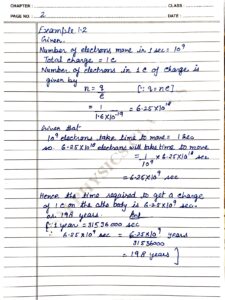 CHAPTER :
CLASS :
PAGE NO. : 2
DATE :
Example 1.2
Given
Number of electrons move in 1 sec = 10⁹
Total charge = 1C
Number of electrons in 1C of charge is
given by
n = q/e [∵ q = ne]
= 1/1.6×10⁻¹⁹ = 6.25×10¹⁸
Given that
10⁹ electrons take time to move = 1 sec
so 6.25×10¹⁸ electrons will take time to move
= 1/10⁹ × 6.25×10¹⁸ sec
= 6.25×10⁹ sec
Hence the time required to get a charge
of 1C on the other body is 6.25×10⁹ sec.
or 198 years. Ans
[∵ 1 year = 31536000 sec
∵ 6.25×10⁹ sec = 6.25×10⁹/31536000 years
= 198 years]
PHYSICS